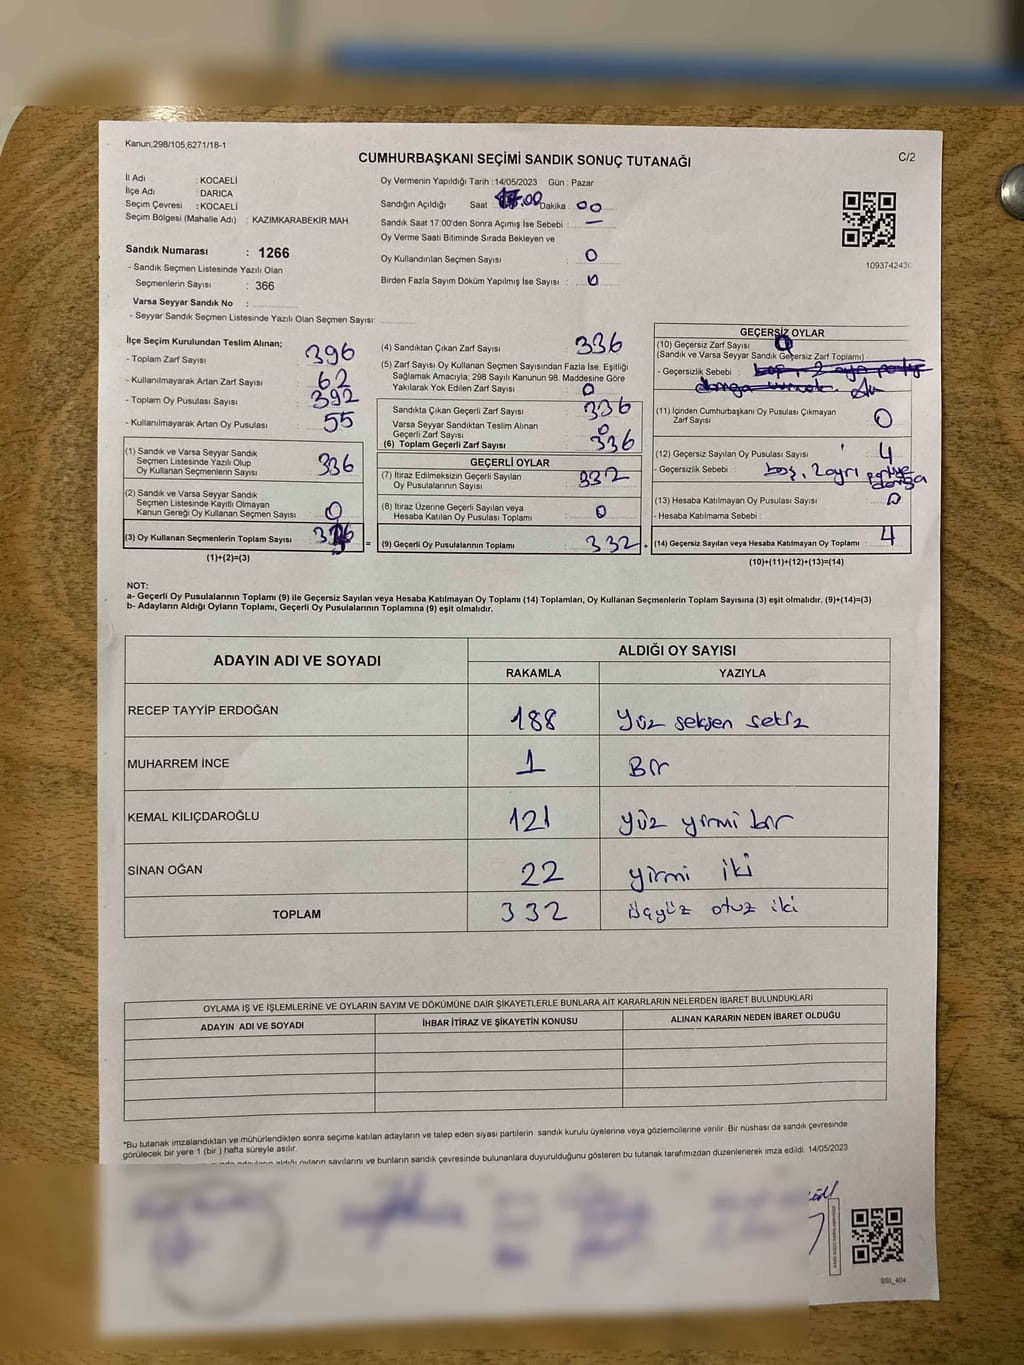 Kanun,298/105,6271/18-1
CUMHURBAŞKANI SEÇİMİ SANDIK SONUÇ TUTANAĞI
C/2
İl Adı : KOCAELİ
İlçe Adı : DARICA
Seçim Çevresi : KOCAELİ
Seçim Bölgesi (Mahalle Adı) : KAZIMKARABEKİR MAH.
Sandık Numarası : 1266
- Sandık Seçmen Listesinde Yazılı Olan
Seçmenlerin Sayısı : 366
Varsa Seyyar Sandık No :
- Seyyar Sandık Seçmen Listesinde Yazılı Olan Seçmen Sayısı:
Oy Vermenin Yapıldığı Tarih : 14/05/2023 Gün : Pazar
Sandığın Açıldığı Saat 17.00 Dakika : 00
Sandık Saat 17:00'den Sonra Açımış İse Sebebi : —
Oy Verme Saati Bitiminde Sırada Bekleyen ve
Oy Kullandırılan Seçmen Sayısı : 0
Birden Fazla Sayım Döküm Yapılmış İse Sayısı : 0
1093742430
İlçe Seçim Kurulundan Teslim Alınan;
- Toplam Zarf Sayısı : 396
- Kullanılmayarak Artan Zarf Sayısı : 62
- Toplam Oy Pusulası Sayısı : 392
- Kullanılmayarak Artan Oy Pusulası : 55
(1) Sandık ve Varsa Seyyar Sandık
Seçmen Listesinde Yazılı Olup
Oy Kullanan Seçmenlerin Sayısı : 336
(2) Sandık ve Varsa Seyyar Sandık
Seçmen Listesinde Kayıtlı Olmayan
Kanun Gereği Oy Kullanan Seçmen Sayısı : 0
(3) Oy Kullanan Seçmenlerin Toplam Sayısı : 336
(1)+(2)=(3)
(4) Sandıktan Çıkan Zarf Sayısı : 336
(5) Zarf Sayısı Oy Kullanan Seçmen Sayısından Fazla İse, Eşitliği
Sağlamak Amacıyla; 298 Sayılı Kanunun 98. Maddesine Göre
Yakılarak Yok Edilen Zarf Sayısı : 0
Sandıkta Çıkan Geçerli Zarf Sayısı : 336
Varsa Seyyar Sandıktan Teslim Alınan
Geçerli Zarf Sayısı : 0
(6) Toplam Geçerli Zarf Sayısı : 336
GEÇERLİ OYLAR
(7) İtiraz Edilmeksizin Geçerli Sayılan
Oy Pusulalarının Sayısı : 332
(8) İtiraz Üzerine Geçerli Sayılan veya
Hesaba Katılan Oy Pusulası Toplamı : 0
= (9) Geçerli Oy Pusulalarının Toplamı : 332
GEÇERSİZ OYLAR
(10) Geçersiz Zarf Sayısı : 0
(Sandık ve Varsa Seyyar Sandık Geçersiz Zarf Toplamı)
- Geçersizlik Sebebi :
(11) İçinden Cumhurbaşkanı Oy Pusulası Çıkmayan
Zarf Sayısı : 0
(12) Geçersiz Sayılan Oy Pusulası Sayısı : 4
- Geçersizlik Sebebi : boş, 2 ayrı partiye
damga
(13) Hesaba Katılmayan Oy Pusulası Sayısı : 0
- Hesaba Katılmama Sebebi :
+ (14) Geçersiz Sayılan veya Hesaba Katılmayan Oy Toplamı : 4
(10)+(11)+(12)+(13)=(14)
NOT:
a- Geçerli Oy Pusulalarının Toplamı (9) ile Geçersiz Sayılan veya Hesaba Katılmayan Oy Toplamı (14) Toplamları, Oy Kullanan Seçmenlerin Toplam Sayısına (3) eşit olmalıdır. (9)+(14)=(3)
b- Adayların Aldığı Oyların Toplamı, Geçerli Oy Pusulalarının Toplamına (9) eşit olmalıdır.
ADAYIN ADI VE SOYADI
ALDIĞI OY SAYISI
RAKAMLA YAZIYLA
RECEP TAYYİP ERDOĞAN 188 Yüz seksen sekiz
MUHARREM İNCE 1 Bir
KEMAL KILIÇDAROĞLU 121 yüz yirmi bir
SİNAN OĞAN 22 yirmi iki
TOPLAM 332 üçyüz otuz iki
OYLAMA İŞ VE İŞLEMLERİNE VE OYLARIN SAYIM VE DÖKÜMÜNE DAİR ŞİKAYETLERLE BUNLARA AİT KARARLARIN NELERDEN İBARET BULUNDUKLARI
ADAYIN ADI VE SOYADI İHBAR İTİRAZ VE ŞİKAYETİN KONUSU ALINAN KARARIN NEDEN İBARET OLDUĞU
*Bu tutanak imzalandıktan ve mühürlendikten sonra seçime katılan adayların ve talep eden siyasi partilerin sandık kurulu üyelerine veya gözlemcilerine verilir. Bir nüshası da sandık çevresinde
görülecek bir yere 1 (bir ) hafta süreyle asılır.
aldığı oyların sayılarını ve bunların sandık çevresinde bulunanlara duyurulduğunu gösteren bu tutanak tarafımızdan düzenlenerek imza edildi. 14/05/2023
SSI_404